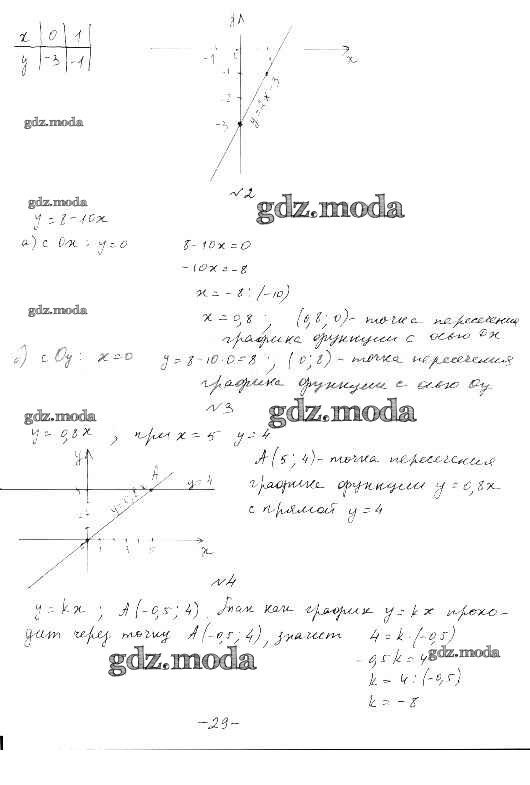 x 0 1
y -3 -1
y
-1 0
x
-1
-2
-3
y=2x-3
gdz.moda
№2
gdz.moda
gdz.moda
y=8-10x
а) с Ox: y=0 8-10x=0
-10x=-8
x=-8:(-10)
gdz.moda
x=0,8; (0,8; 0)- точка пересечения
графика функции с осью Ox
б) с Oy: x=0 y=8-10·0=8; (0; 8)- точка пересечения
графика функции с осью Oy
№3
gdz.moda
gdz.moda
y=0,8x, при x=5 y=4
y A y=4
y=0,8x
x
A(5; 4)- точка пересечения
графика функции y=0,8x
с прямой y=4
№4
y=kx; A(-0,5; 4), так как график y=kx прохо-
дит через точку A(-0,5; 4), значит 4=k·(-0,5)
gdz.moda
-0,5k=4
gdz.moda
k=4:(-0,5)
k=-8
-29-